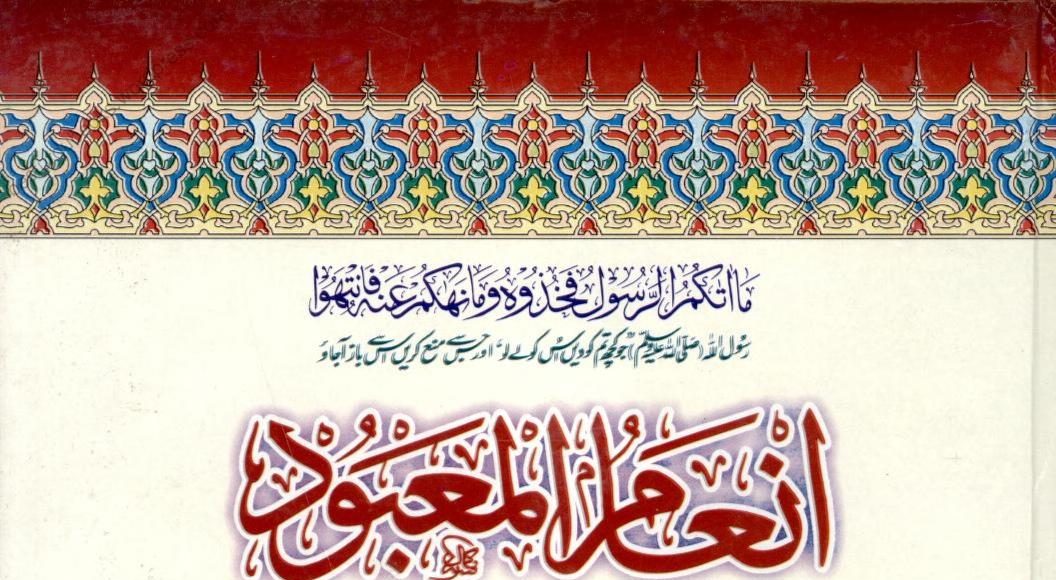 مَا اٰتٰكُمُ الرَّسُوْلُ فَخُذُوْهُ وَمَا نَهٰكُمْ عَنْهُ فَانْتَهُوْا
رسول اللہ (صلی اللہ علیہ وسلم) جو کچھ تم کو دیں اس کو لے لو، اور جس سے منع کریں اس سے باز آجاؤ
اِنْعَامُ الْمَعْبُوْد